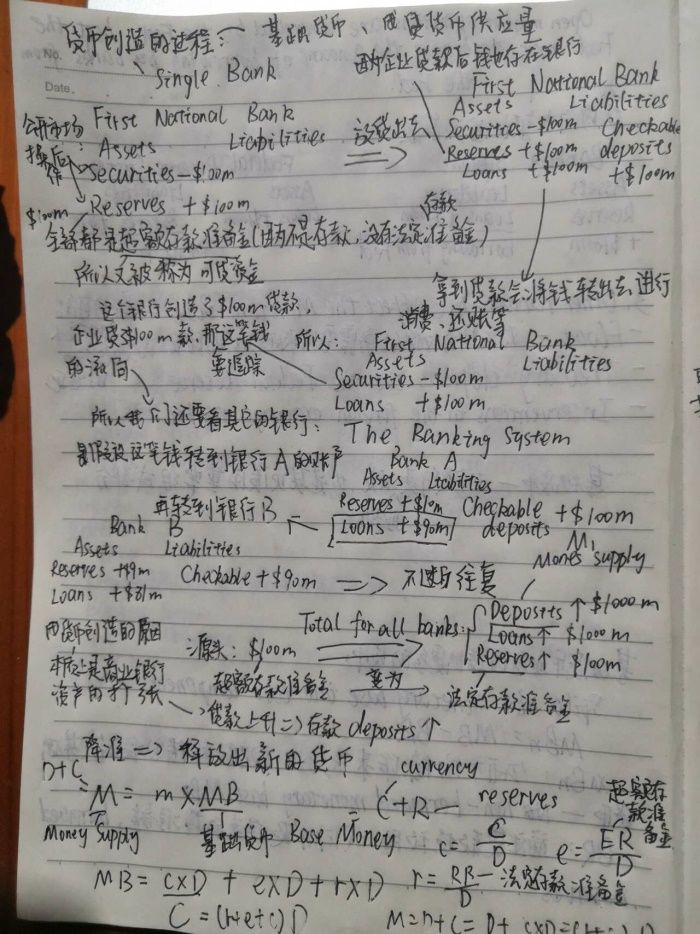 No.
Date.
货币创造的过程: 基础货币、 货币供应量
Single Bank
因为企业贷款后钱也存在本银行
First National Bank
Assets Liabilities
Securities -$100m
Reserves +$100m
公开市场
操作
$100m
设贷出去
First National Bank
Assets Liabilities
Securities -$100m Checkable
Reserves +$100m deposits
Loans +$100m +$100m
存款
全部都是超额存款准备金(因为不是存款,没有法定准备金)
所以又被称为可贷资金
这个银行创造了$100m贷款,
企业贷$100m款,那这笔钱
的流向 要追踪
拿到贷款会将钱转出去进行
消费、还账等
所以: First National Bank
Assets Liabilities
Securities -$100m
Loans +$100m
所以我们还要看其它的银行:
The Banking System
假设这笔钱转到银行A的账户
Bank A
Assets Liabilities
Reserves +$10m Checkable +$100m
Loans +$90m deposits
M1
Money Supply
再转到银行B
Bank B
Assets Liabilities
Reserves +$9m Checkable +$90m
Loans +$81m
不断往复
Total for all banks:
Deposits ↑ $1000m
Loans ↑ $1000m
Reserves ↑ $100m
货币创造的原因
本质上是商业银行
资产的扩张
源头: $100m
超额存款准备金 变为 法定存款准备金
贷款上升 => 存款 deposits ↑
降准 => 释放出新的货币
D+C
M = m×MB
Money Supply
基础货币 Base Money
currency
C+R — reserves
c = C/D e = ER/D
超额存款准备金
MB = c×D + e×D + r×D
r = RR/D — 法定存款准备金
C = (r+e+c)D
M=D+C= D+ c×D=